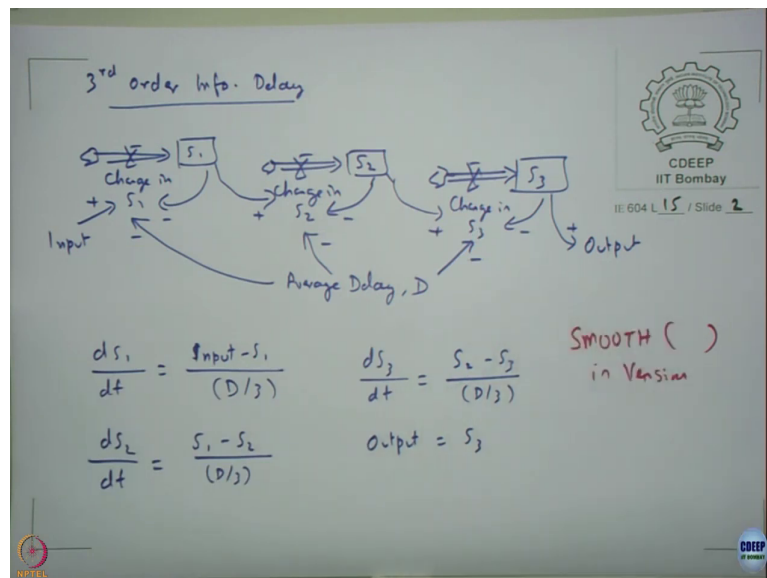 3rd Order Info. Delay
CDEEP
IIT Bombay
IE 604 L 15 / Slide 2
S1
S2
S3
Change in
S1
Change in
S2
Change in
S3
+
-
+
-
+
-
+
Input
Output
-
-
-
Average Delay, D
dS1/dt = Input - S1/(D/3)
dS3/dt = S2 - S3/(D/3)
SMOOTH ( )
in Vensim
dS2/dt = S1 - S2/(D/3)
Output = S3
NPTEL
CDEEP
IIT BOMBAY